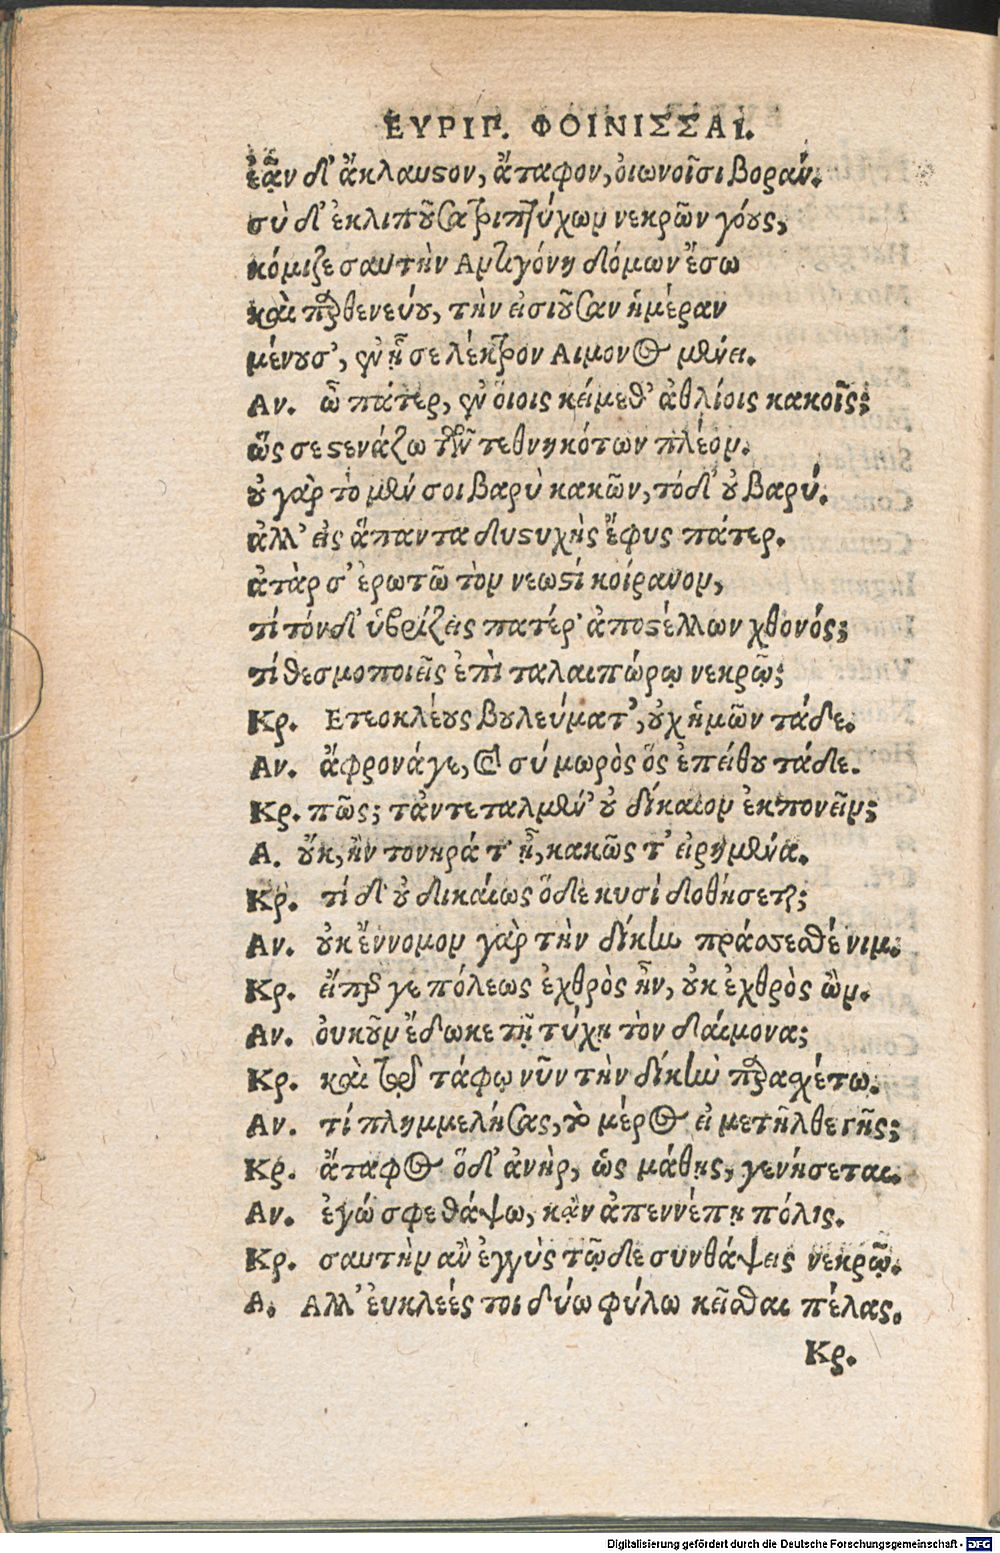 ΕΥΡΙΠ. ΦΟΙΝΙΣΣΑΙ.
ἐᾷν δ' ἄκλαυστον, ἄταφον, ὀιωνοῖσι βοράν.
σὺ δ' ἐκλιποῦσα τριπτύχων νεκρῶν γόους,
κόμιζε σαυτὴν Αντιγόνη δόμων ἔσω
καὶ παρθενεύου, τὴν εἰσιοῦσαν ἡμέραν
μένουσ', ἐν ᾗ σε λέκτρον Αιμονος μένει.
Αν. ὦ πάτερ, ἐν ὅιοις κείμεθ' ἀθλίοις κακοῖς;
ὥς σε στενάζω τῶν τεθνηκότων πλέον.
οὐ γὰρ το μέν σοι βαρὺ κακῶν, τόδ' οὐ βαρύ.
ἀλλ' εἰς ἅπαντα δυστυχὴς ἔφυς πάτερ.
ἀτὰρ σ' ἐρωτῶ τὸν νεωστί κοίρανον,
τί τόνδ' ὑβρίζεις πατέρ' ἀποστέλλων χθονός;
τί θεσμοποιεῖς ἐπὶ ταλαιπώρῳ νεκρῷ;
Κρ. Ετεοκλέους βουλεύματ', οὐχ ἡμῶν τάδε.
Αν. ἄφρονάγε, καὶ σύ μωρὸς ὅς ἐπείθου τάδε.
Κρ. πῶς; τἀντεταλμέν' οὐ δίκαιον ἐκπονεῖν;
Α. οὔκ, ἢν τονηρά τ' ᾖ, κακῶς τ' εἰρημένα.
Κρ. τί δ' οὐ δικαίως ὅδε κυσὶ δοθήσεται;
Αν. οὐκ ἔννομον γὰρ τὴν δίκην πράσσεσθέ νιν.
Κρ. εἴπερ γε πόλεως ἐχθρὸς ἦν, οὐκ ἐχθρὸς ὢν.
Αν. ὀυκοῦν ἔδωκε τῇ τύχῃ τὸν δαίμονα;
Κρ. καὶ τῷ τάφῳ νῦν τὴν δίκην παρασχέτω.
Αν. τί πλημμελήσας, τὸ μέρος εἰ μετῆλθε γῆς;
Κρ. ἄταφος ὅδ' ἀνὴρ, ὡς μάθῃς, γενήσεται.
Αν. ἐγώ σφε θάψω, κᾂν ἀπεννέπῃ πόλις.
Κρ. σαυτὴν αὖ ἐγγὺς τῷδε συνθάψεις νεκρῷ.
Α. Αλλ' ἐυκλεές τοι δύω φίλω κεῖσθαι πέλας.
Κρ.
Digitalisierung gefördert durch die Deutsche Forschungsgemeinschaft - DFG